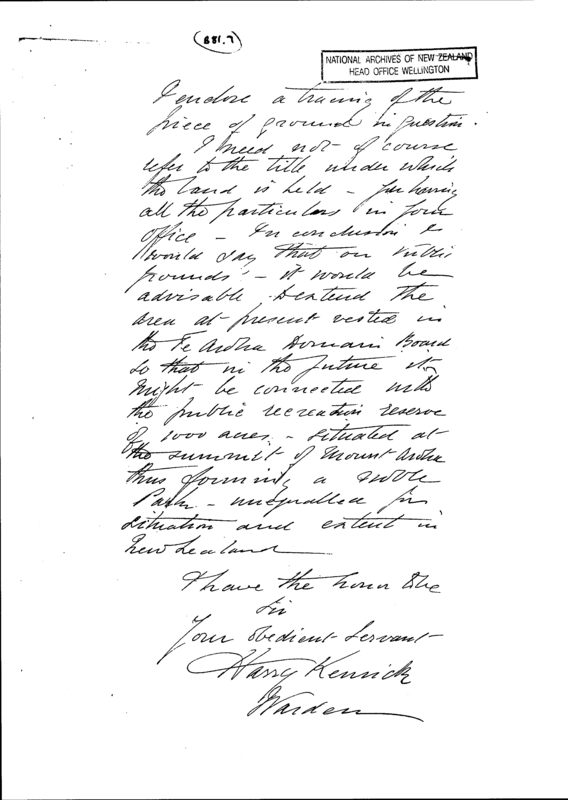 B81.7
NATIONAL ARCHIVES OF NEW ZEALAND
HEAD OFFICE WELLINGTON
I enclose a tracing of the
piece of ground in question.
I need not of course
refer to the title under which
the land is held - you having
all the particulars in your
office - In conclusion I
would say that on public
grounds - it would be
advisable to extend the
area at present vested in
the Te Aroha Domain Board
so that in the future it
might be connected with
the public recreation reserve
of 1000 acres - situated at
the summit of Mount Aroha
thus forming a noble
Park - unequalled for
situation and extent in
New Zealand
I have the honor to be
Sir
Your obedient Servant
Harry Kenrick
Warden